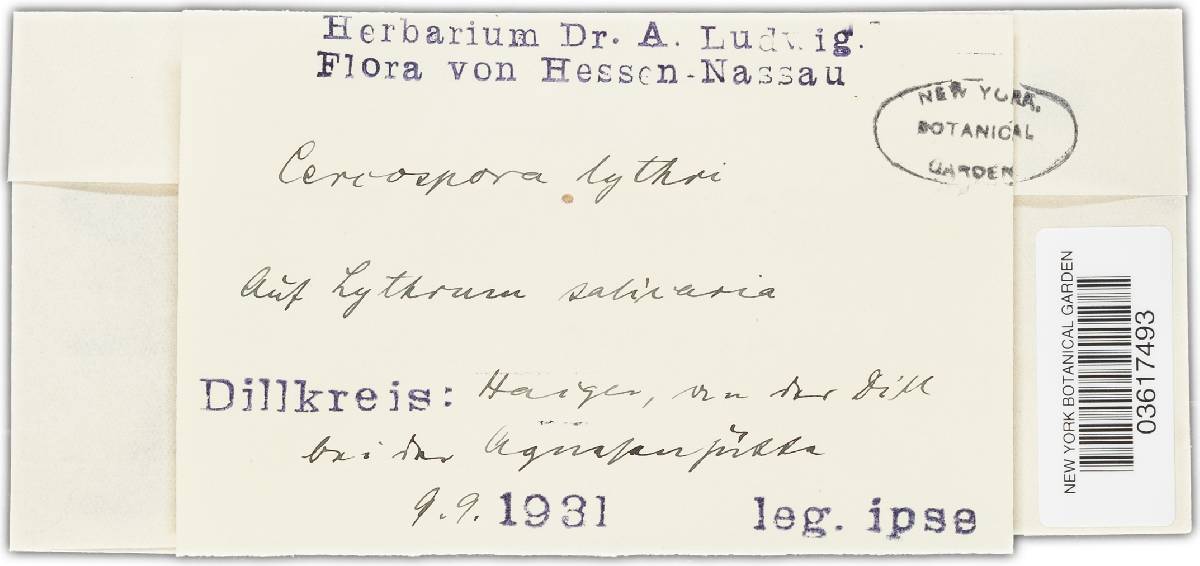 Herbarium Dr. A. Ludwig.
Flora von Hessen-Nassau
NEW YORK
BOTANICAL
GARDEN
Cercospora lythri
Auf Lythrum salicaria
Dillkreis: Haiger, an der Dill
bei der Agnesenhütte
9.9. 1931 leg. ipse
NEW YORK BOTANICAL GARDEN
03617493